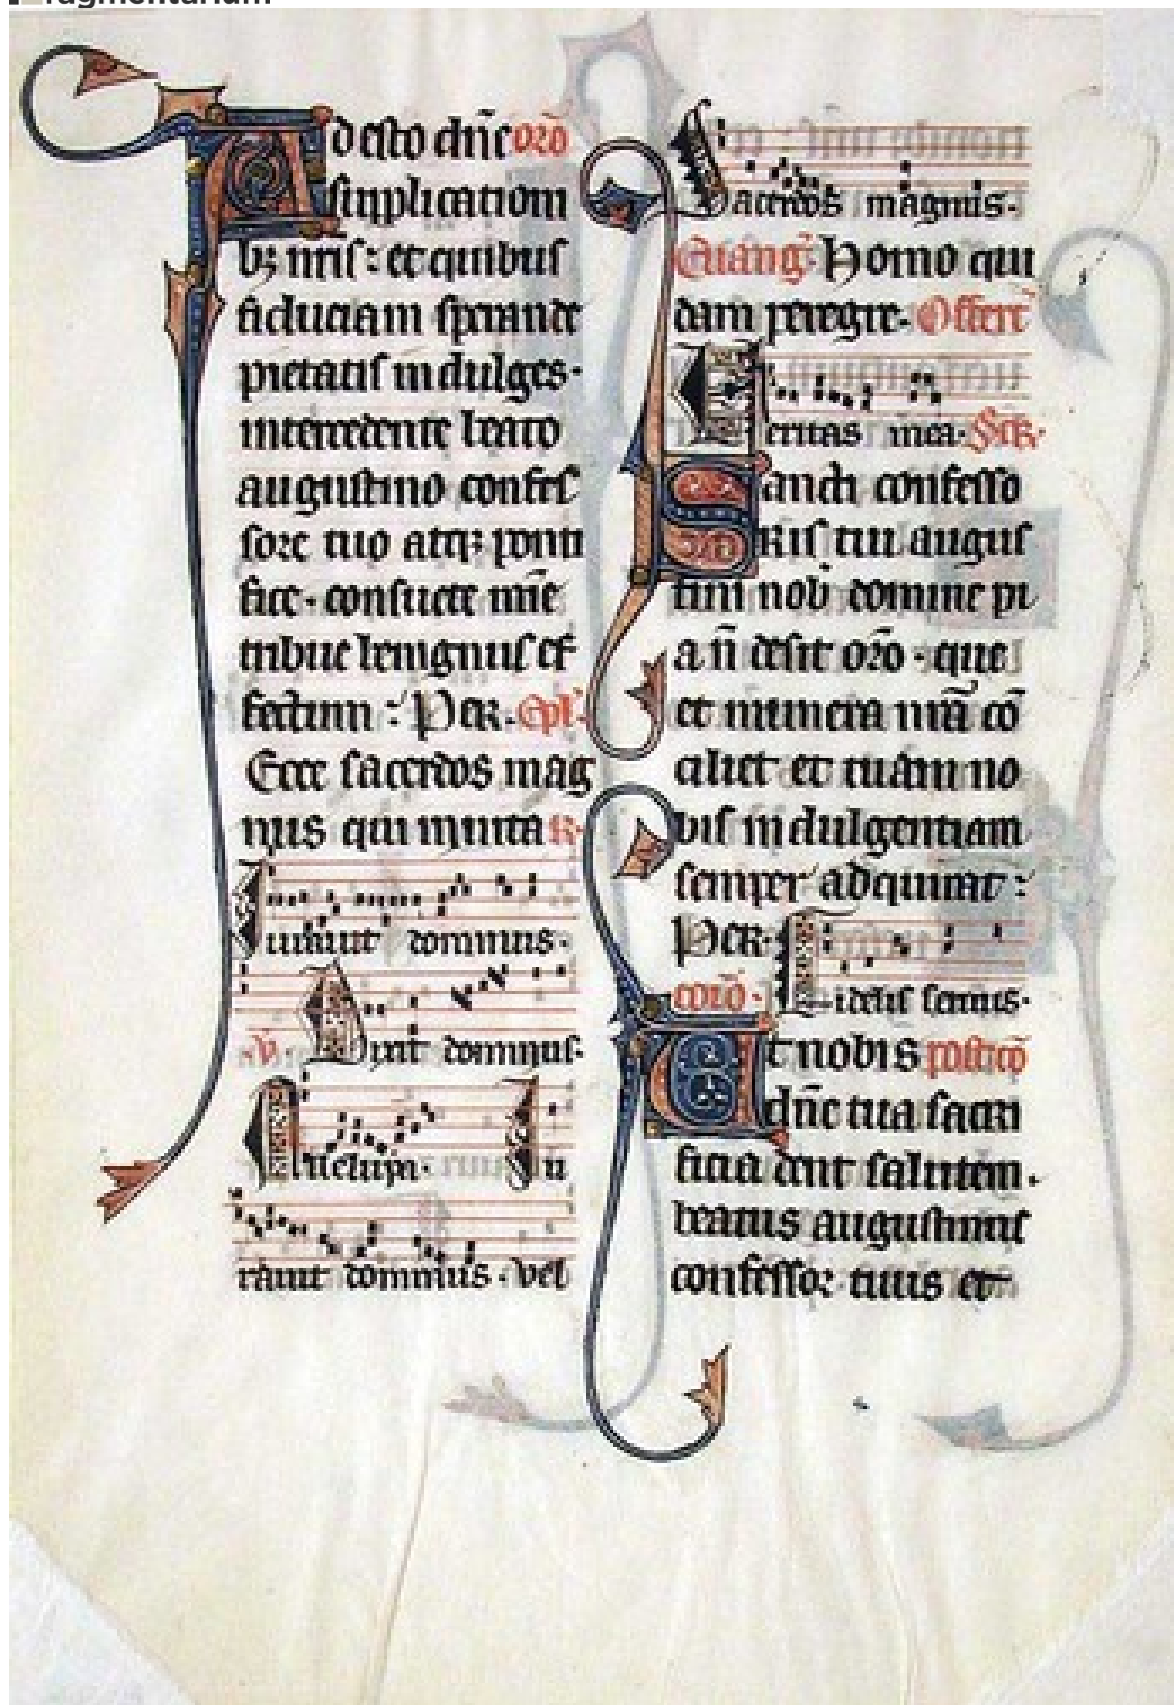 fragmentarium
Adesto dn̄e orō
supplication
bȝ nr̄is : et quibus
fiduciam sperande
pietatis indulges ·
intercedente beato
augustino confes
sore tuo atqȝ ponti
fice · consuete mīe
tribue benignus ef
fectum : Per · Epl̄ ·
Ecce sacerdos mag
nus qui in uita R ·
Iurauit dominus ·
V̄ · Dixit dominus ·
Alleluya · Iu
rauit dominus · vel
Sacerdos magnus ·
Euanḡ · Homo qui
dam peregre · Offert̄
Veritas mea · Secr̄ ·
Sancti confesso
ris tui augus
tini nob̄ domine pi
a n̄ desit orō · que
et munera nr̄a cō
ciliet et tuam no
bis indulgentiam
semper adquirat :
Per ·
cōiō · Fidelis seruus ·
Ut nobis postcō
dn̄e tua sacri
ficia dent salutem ·
beatus augustinus
confessor tuus et